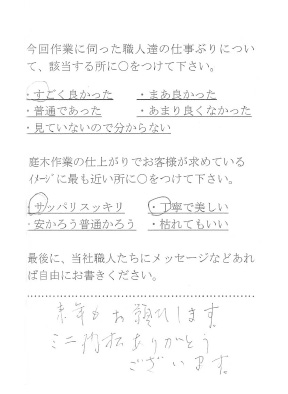 今回作業に伺った職人達の仕事ぶりについ
て、該当する所に○をつけて下さい。
・すごく良かった ・まあ良かった
・普通であった ・あまり良くなかった
・見ていないので分からない
庭木作業の仕上がりでお客様が求めている
ｲﾒｰｼﾞに最も近い所に○をつけて下さい。
・サッパリスッキリ ・丁寧で美しい
・安かろう普通かろう ・枯れてもいい
最後に、当社職人たちにメッセージなどあれ
ば自由にお書きください。
来年もお願いします。
ミニ門松ありがとう
ございます。